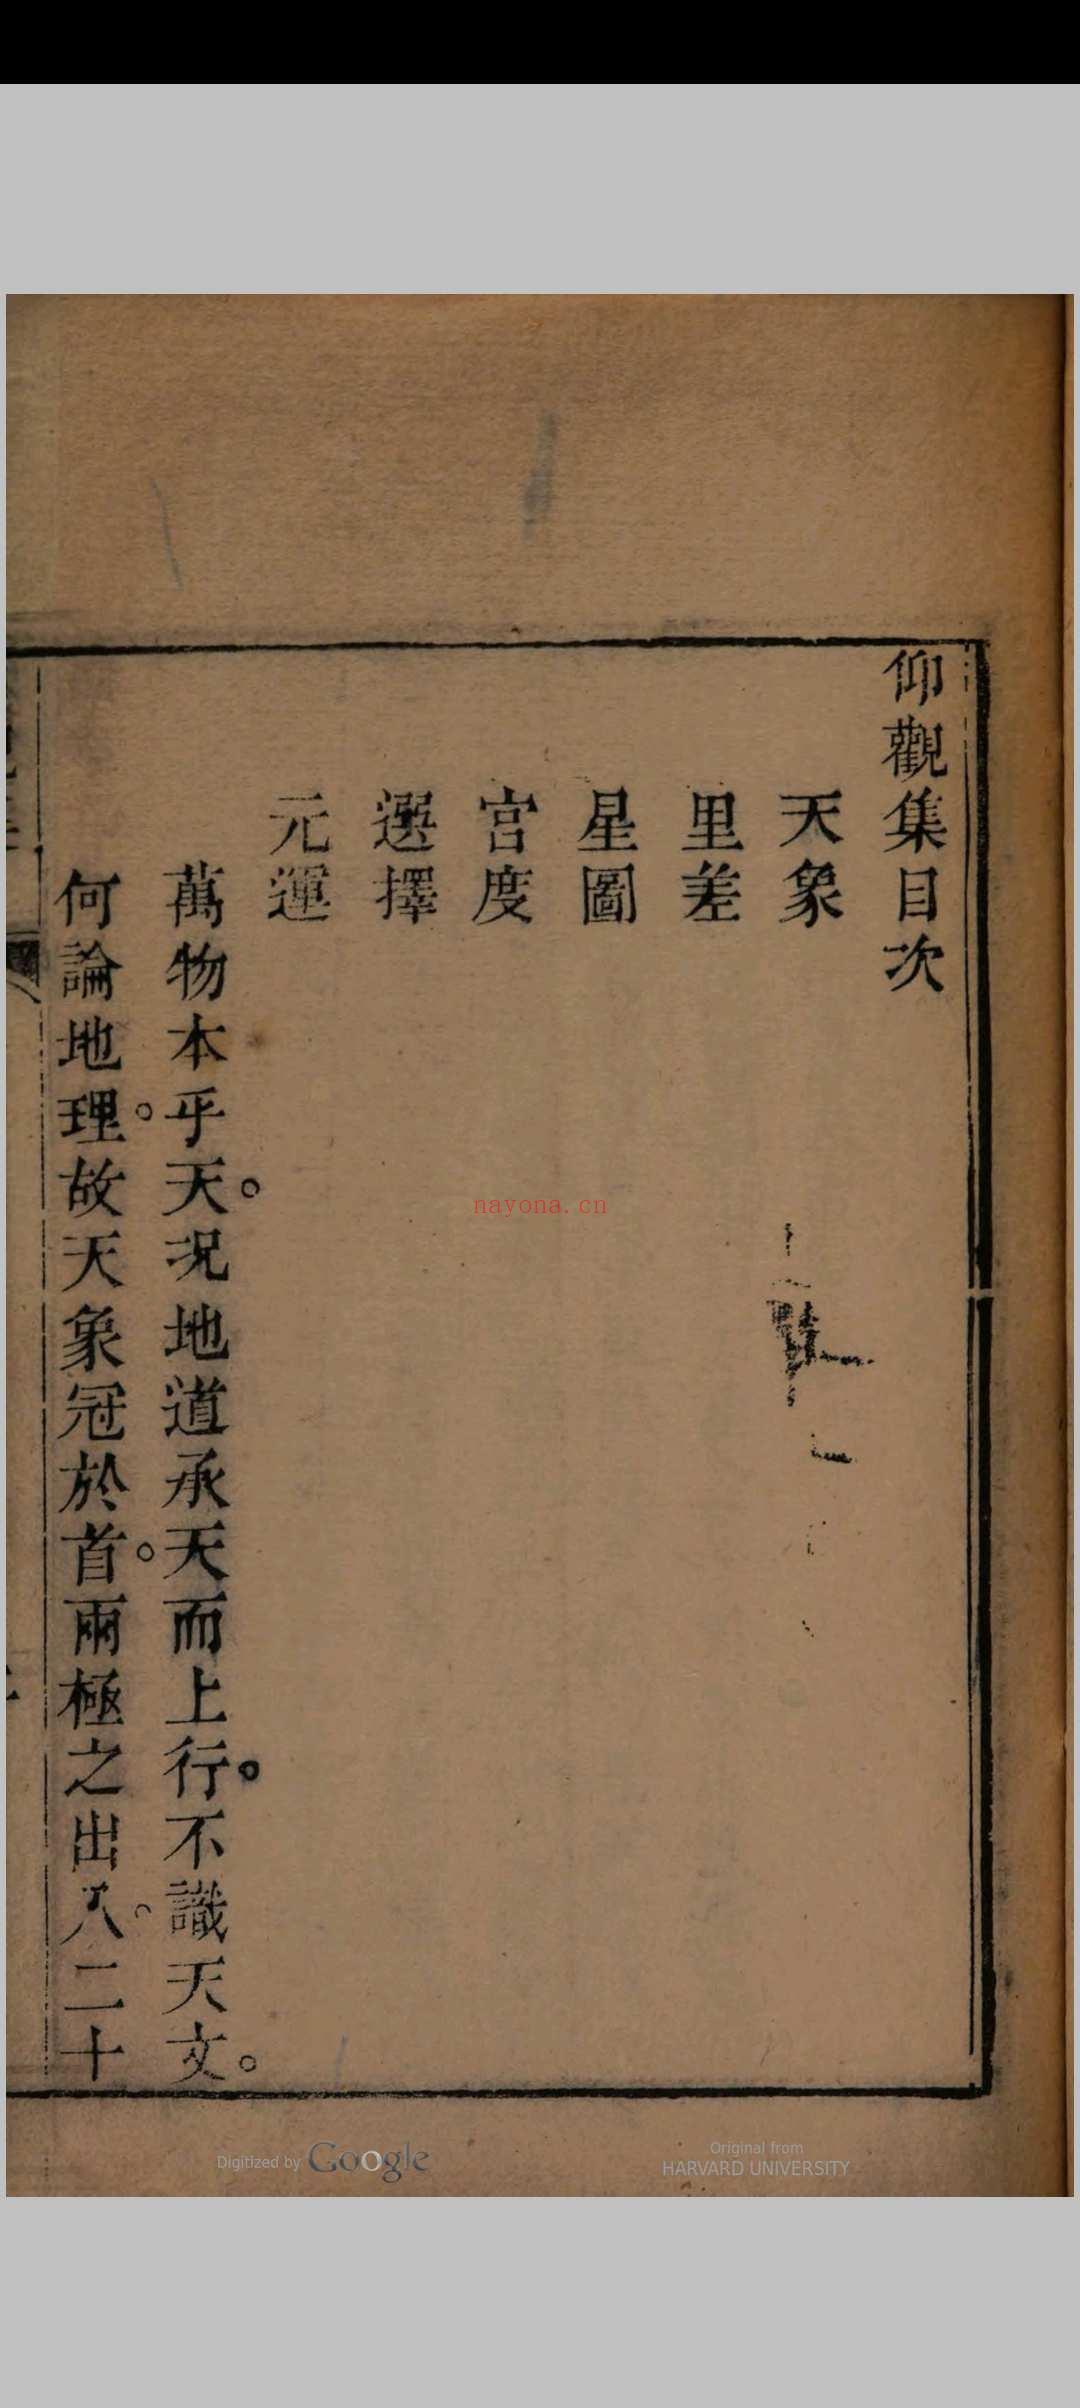 仰觀集目次
天象
里差
星圖
宫度
選擇
元運
萬物本乎天。况地道承天而上行。不識天文。
何論地理。故天象冠於首。兩極之出入。二十
nayona.cn
Digitized by Google
Original from
HARVARD UNIVERSITY